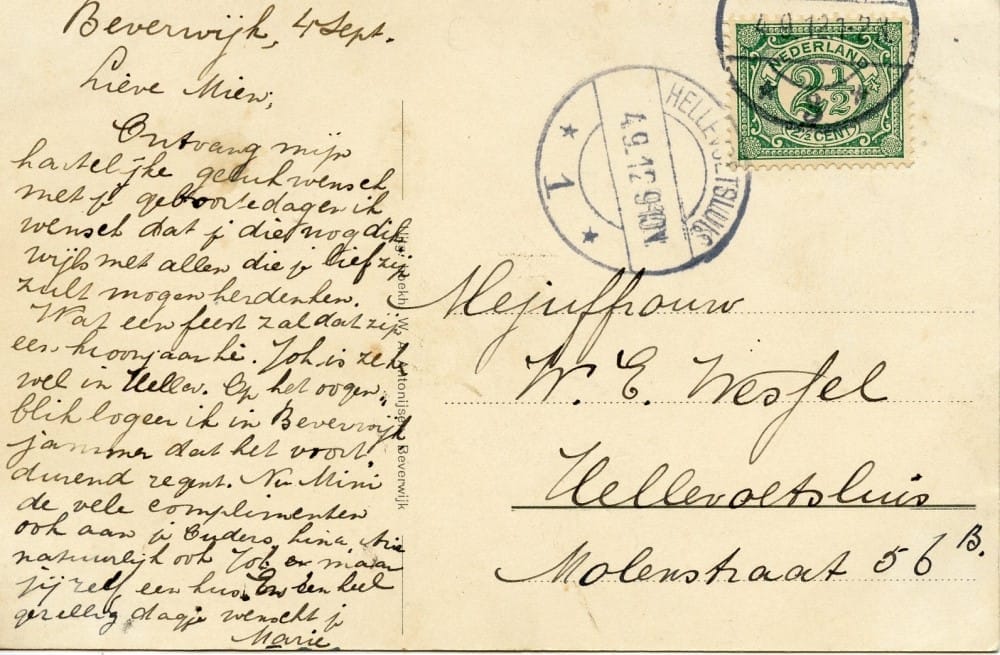 Beverwijk, 4 Sept.
Lieve Mien,
Ontvang mijn
hartelijke gelukwensch
met je geboortedag en ik
wensch dat je die nog dik-
wijls met allen die je lief zijn
zult mogen herdenken.
Wat een feest zal dat zijn
een kroonjaar hè. Joh. is zeker
wel in Hellev. Op het oogen-
blik logeer ik in Beverwijk
jammer dat het voort-
durend regent. Nu Mini
de vele complimenten
ook aan je Ouders, Lina,
natuurlijk ook Joh. en maar
jij zelf een kus. En een heel
gezellig dagje wenscht je
Marie
Uitg. Boekh. W. A. Antonijsen, Beverwijk
NEDERLAND
2½
2½ CENT
4.9.12
HELLEVOETSLUIS
4.9.12 9-10V
1
Mejuffrouw
W. E. Wessel
Hellevoetsluis
Molenstraat 56 B.